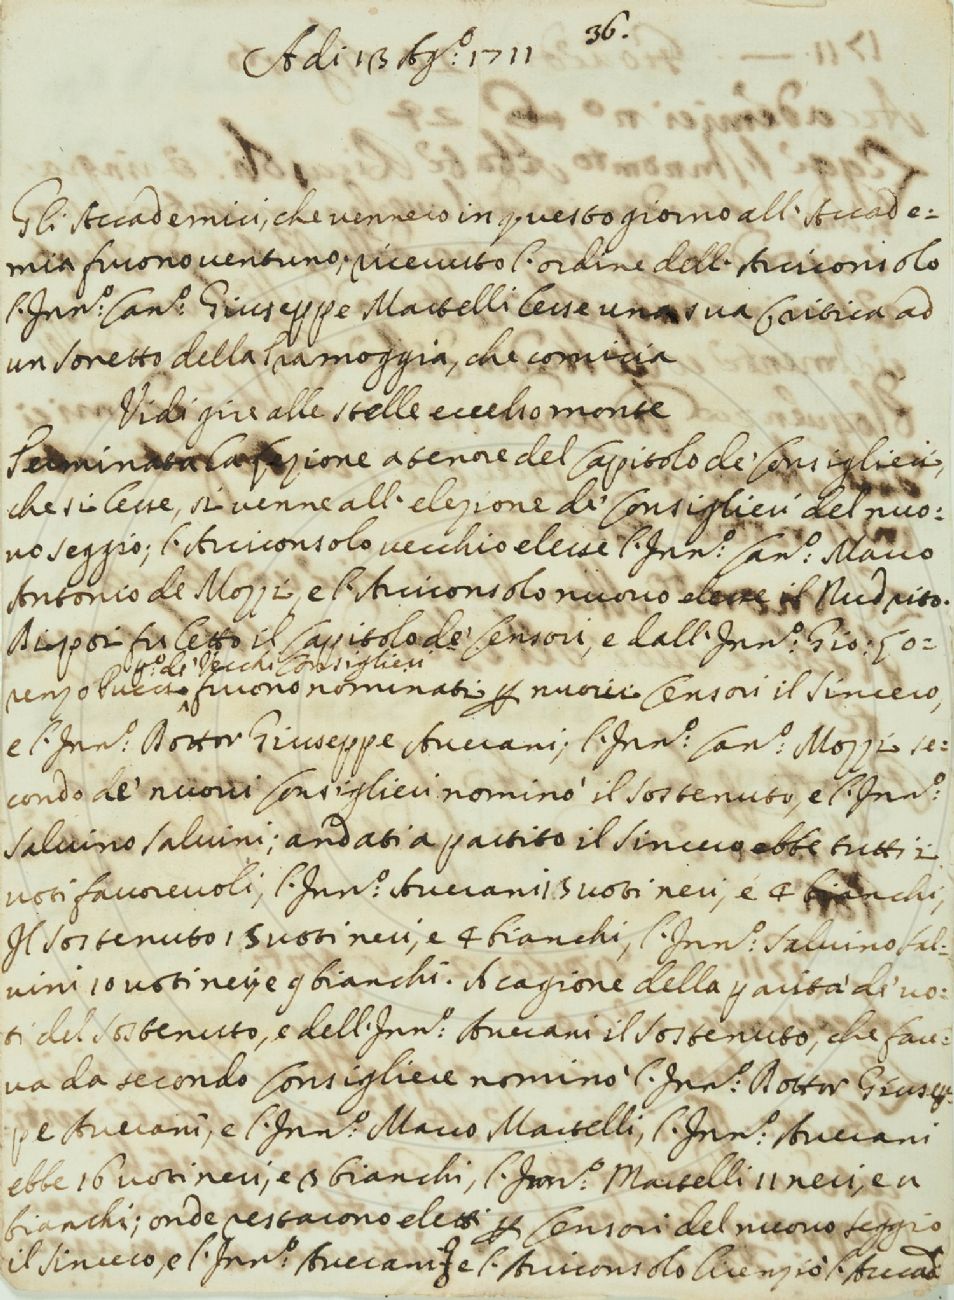 36.
A di 13 Ag.º 1711
Gli Accademici, che vennero in questo giorno all' Accade=
mia furono ventuno; ricevuto l' ordine dell' Arciconsolo
l' Inn.º Can.º Giuseppe Martelli lesse una sua Critica ad
un sonetto della Tramoggia, che comicia
Vidi gire alle stelle eccelso monte
Terminata la lezione a tenore del Capitolo de' Consiglieri,
che si lesse, si venne all' elezione de' Consiglieri del nuo=
vo seggio; l' Arciconsolo vecchio elesse l' Inn.º Can.º Marco
Antonio de Mozzi, e l' Arciconsolo nuovo elesse il Rudrito.
Di poi fu letto il Capitolo de' Censori, e dall' Inn.º Gio: Lo=
p.º de' Vecchi Consiglieri
renzo Pucci furono nominati p nuovi Censori il Sincero,
e l' Inn.º Dottor Giuseppe Averani; l' Inn.º Can.º Mozzi se=
condo de' nuovi Consiglieri nominò il Sostenuto, e l' Inn.º
Salvino Salvini; andati a partito il Sincero ebbe tutti i
voti favorevoli, l' Inn.º Averani 15 voti neri, e 4 bianchi,
Il Sostenuto 15 voti neri, e 4 bianchi, l' Inn.º Salvino Sal=
vini 10 voti neri, e 9 bianchi. A cagione della parità de' vo=
ti del Sostenuto, e dell' Inn.º Averani il Sostenuto, che face=
va da secondo Consigliere nominò l' Inn.º Dottor Giusep=
pe Averani, e l' Inn.º Marco Martelli, l' Inn.º Averani
ebbe 16 voti neri, e 3 bianchi, l' Inn.º Martelli 11 neri, e
bianchi; onde restarono eletti p Censori del nuovo seggio
il Sincero, e l' Inn.º Averani e l' Arciconsolo licenziò l' Accad